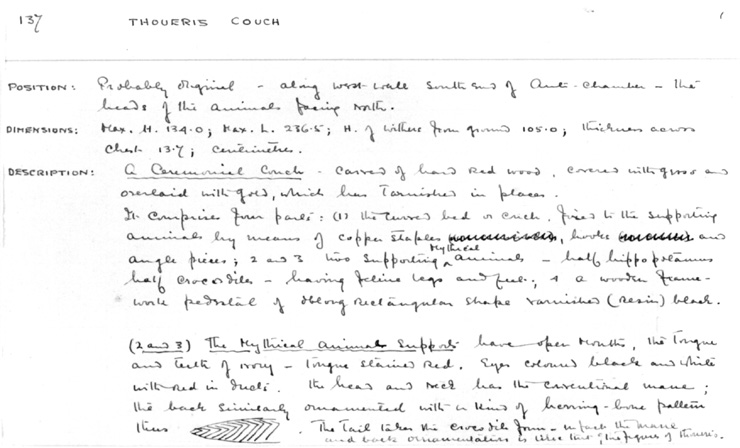 137 THOUERIS COUCH
POSITION: Probably original - along west-wall South end of Ante-chamber - the
heads of the animals facing North.
DIMENSIONS: Max. H. 134.0; Max. L. 236.5; H. of withers from ground 105.0; thickness across
chest 13.7; centimetres.
DESCRIPTION: A Ceremonial Couch - carved of hard red wood, covered with gesso and
overlaid with gold, which has tarnished in places.
It comprises four parts: (1) the curved bed or couch, fixed to the supporting
animals by means of copper staples, hooks and
angle pieces; 2 and 3 two supporting Mythical animals - half hippopotamus
half crocodiles - having feline legs and feet; 4 a wooden frame-
work pedestal of oblong rectangular shape varnished (resin) black.
(2 and 3) The Mythical animal supports have open mouths, the tongue
and teeth of ivory - tongue stained red. Eyes coloured black and white
with red in ducts. The head and neck has the conventional mane;
the back similarly ornamented with a kind of herring-bone pattern
thus. The tail takes the crocodile form - in fact the mane
and back ornamentation is like that of the figures of Thoueris.